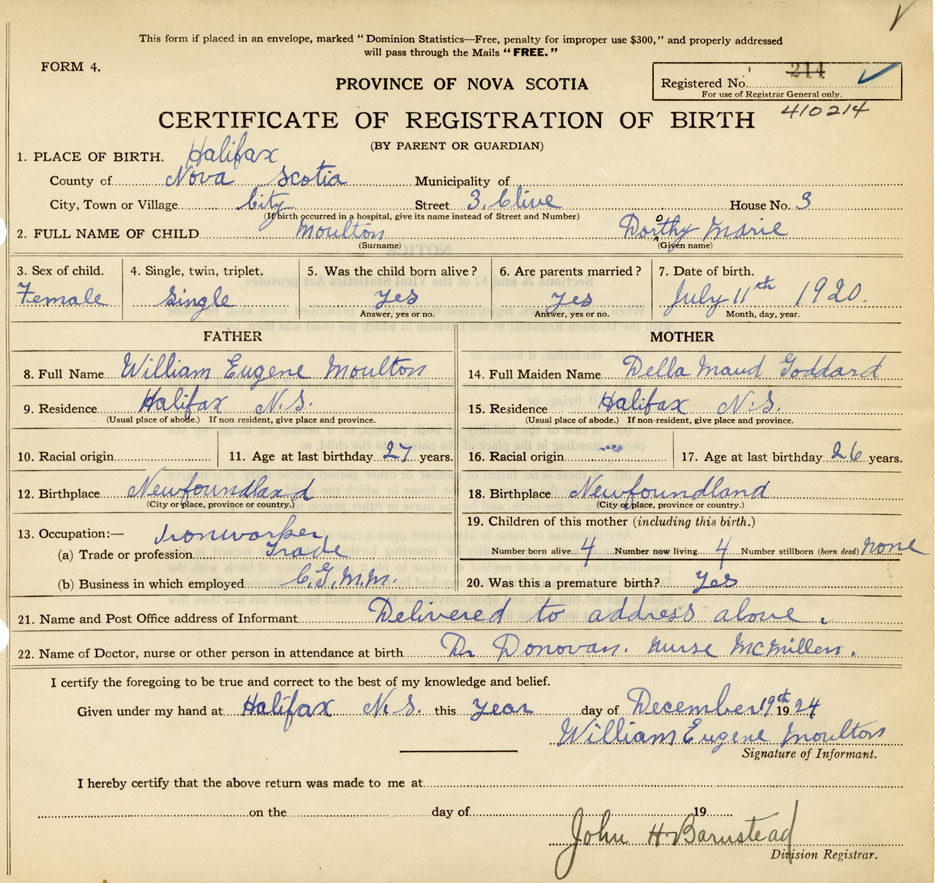 This form if placed in an envelope, marked "Dominion Statistics—Free, penalty for improper use $300," and properly addressed
will pass through the Mails "FREE."
FORM 4.
PROVINCE OF NOVA SCOTIA
Registered No. 214
For use of Registrar General only.
410214
CERTIFICATE OF REGISTRATION OF BIRTH
(BY PARENT OR GUARDIAN)
1. PLACE OF BIRTH. Halifax
County of Nova Scotia Municipality of
City, Town or Village City Street 3. Clive House No. 3
(If birth occurred in a hospital, give its name instead of Street and Number)
2. FULL NAME OF CHILD Moulton Dorothy Marie
(Surname) (Given name)
3. Sex of child. 4. Single, twin, triplet. 5. Was the child born alive? 6. Are parents married? 7. Date of birth.
Female Single Yes Yes July 11th 1920.
Answer, yes or no. Answer, yes or no. Month, day, year.
FATHER MOTHER
8. Full Name William Eugene Moulton 14. Full Maiden Name Della Maud Goddard
9. Residence Halifax N.S. 15. Residence Halifax N.S.
(Usual place of abode.) If non resident, give place and province. (Usual place of abode.) If non resident, give place and province.
10. Racial origin 11. Age at last birthday 27 years. 16. Racial origin 17. Age at last birthday 26 years.
12. Birthplace Newfoundland 18. Birthplace Newfoundland
(City or place, province or country.) (City or place, province or country.)
13. Occupation:— Ironworker 19. Children of this mother (including this birth.)
(a) Trade or profession Trade Number born alive 4 Number now living 4 Number stillborn (born dead) none
(b) Business in which employed C.G.M.M. 20. Was this a premature birth? Yes
21. Name and Post Office address of Informant Delivered to address above.
22. Name of Doctor, nurse or other person in attendance at birth Dr Donovan. Nurse McMillen.
I certify the foregoing to be true and correct to the best of my knowledge and belief.
Given under my hand at Halifax N.S. this Year day of December 19th 1924
William Eugene Moulton
Signature of Informant.
I hereby certify that the above return was made to me at
on the day of 19
John H Barnstead
Division Registrar.